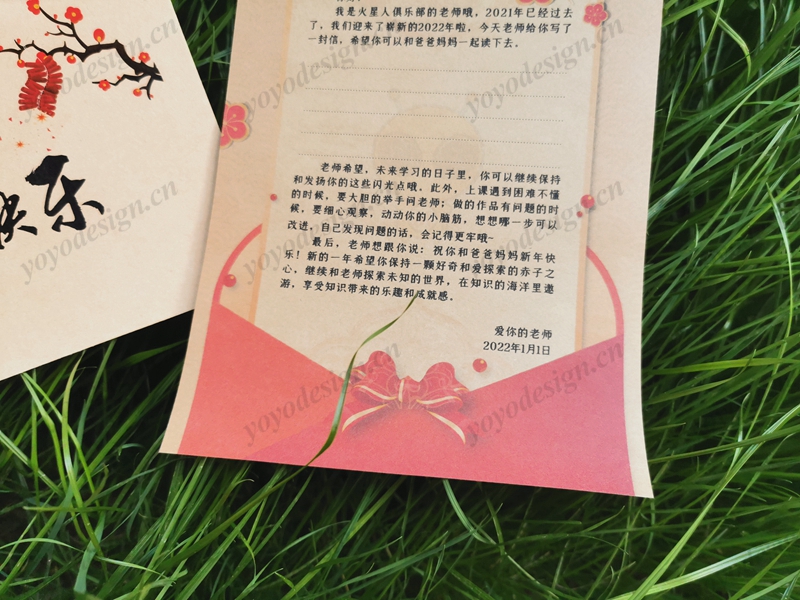 我是火星人俱乐部的老师哦，2021年已经过去
了，我们迎来了崭新的2022年啦，今天老师给你写了
一封信，希望你可以和爸爸妈妈一起读下去。
老师希望，未来学习的日子里，你可以继续保持
和发扬你的这些闪光点哦，此外，上课遇到困难不懂
的时候，要大胆的举手问老师；做的作品有问题的时
候，要细心观察，动动你的小脑筋，想想哪一步可以
改进，自己发现问题的话，会记得更牢哦~
最后，老师想跟你说：祝你和爸爸妈妈新年快
乐！新的一年希望你保持一颗好奇和爱探索的赤子之
心，继续和老师探索未知的世界，在知识的海洋里遨
游，享受知识带来的乐趣和成就感。
爱你的老师
2022年1月1日
快乐
yoyodesign.cn
yoyodesign.cn
yoyodesign.cn
yoyodesign.cn
yoyodesign.cn
yoyodesign.cn
yoyodesign.cn
yoyodesign.cn